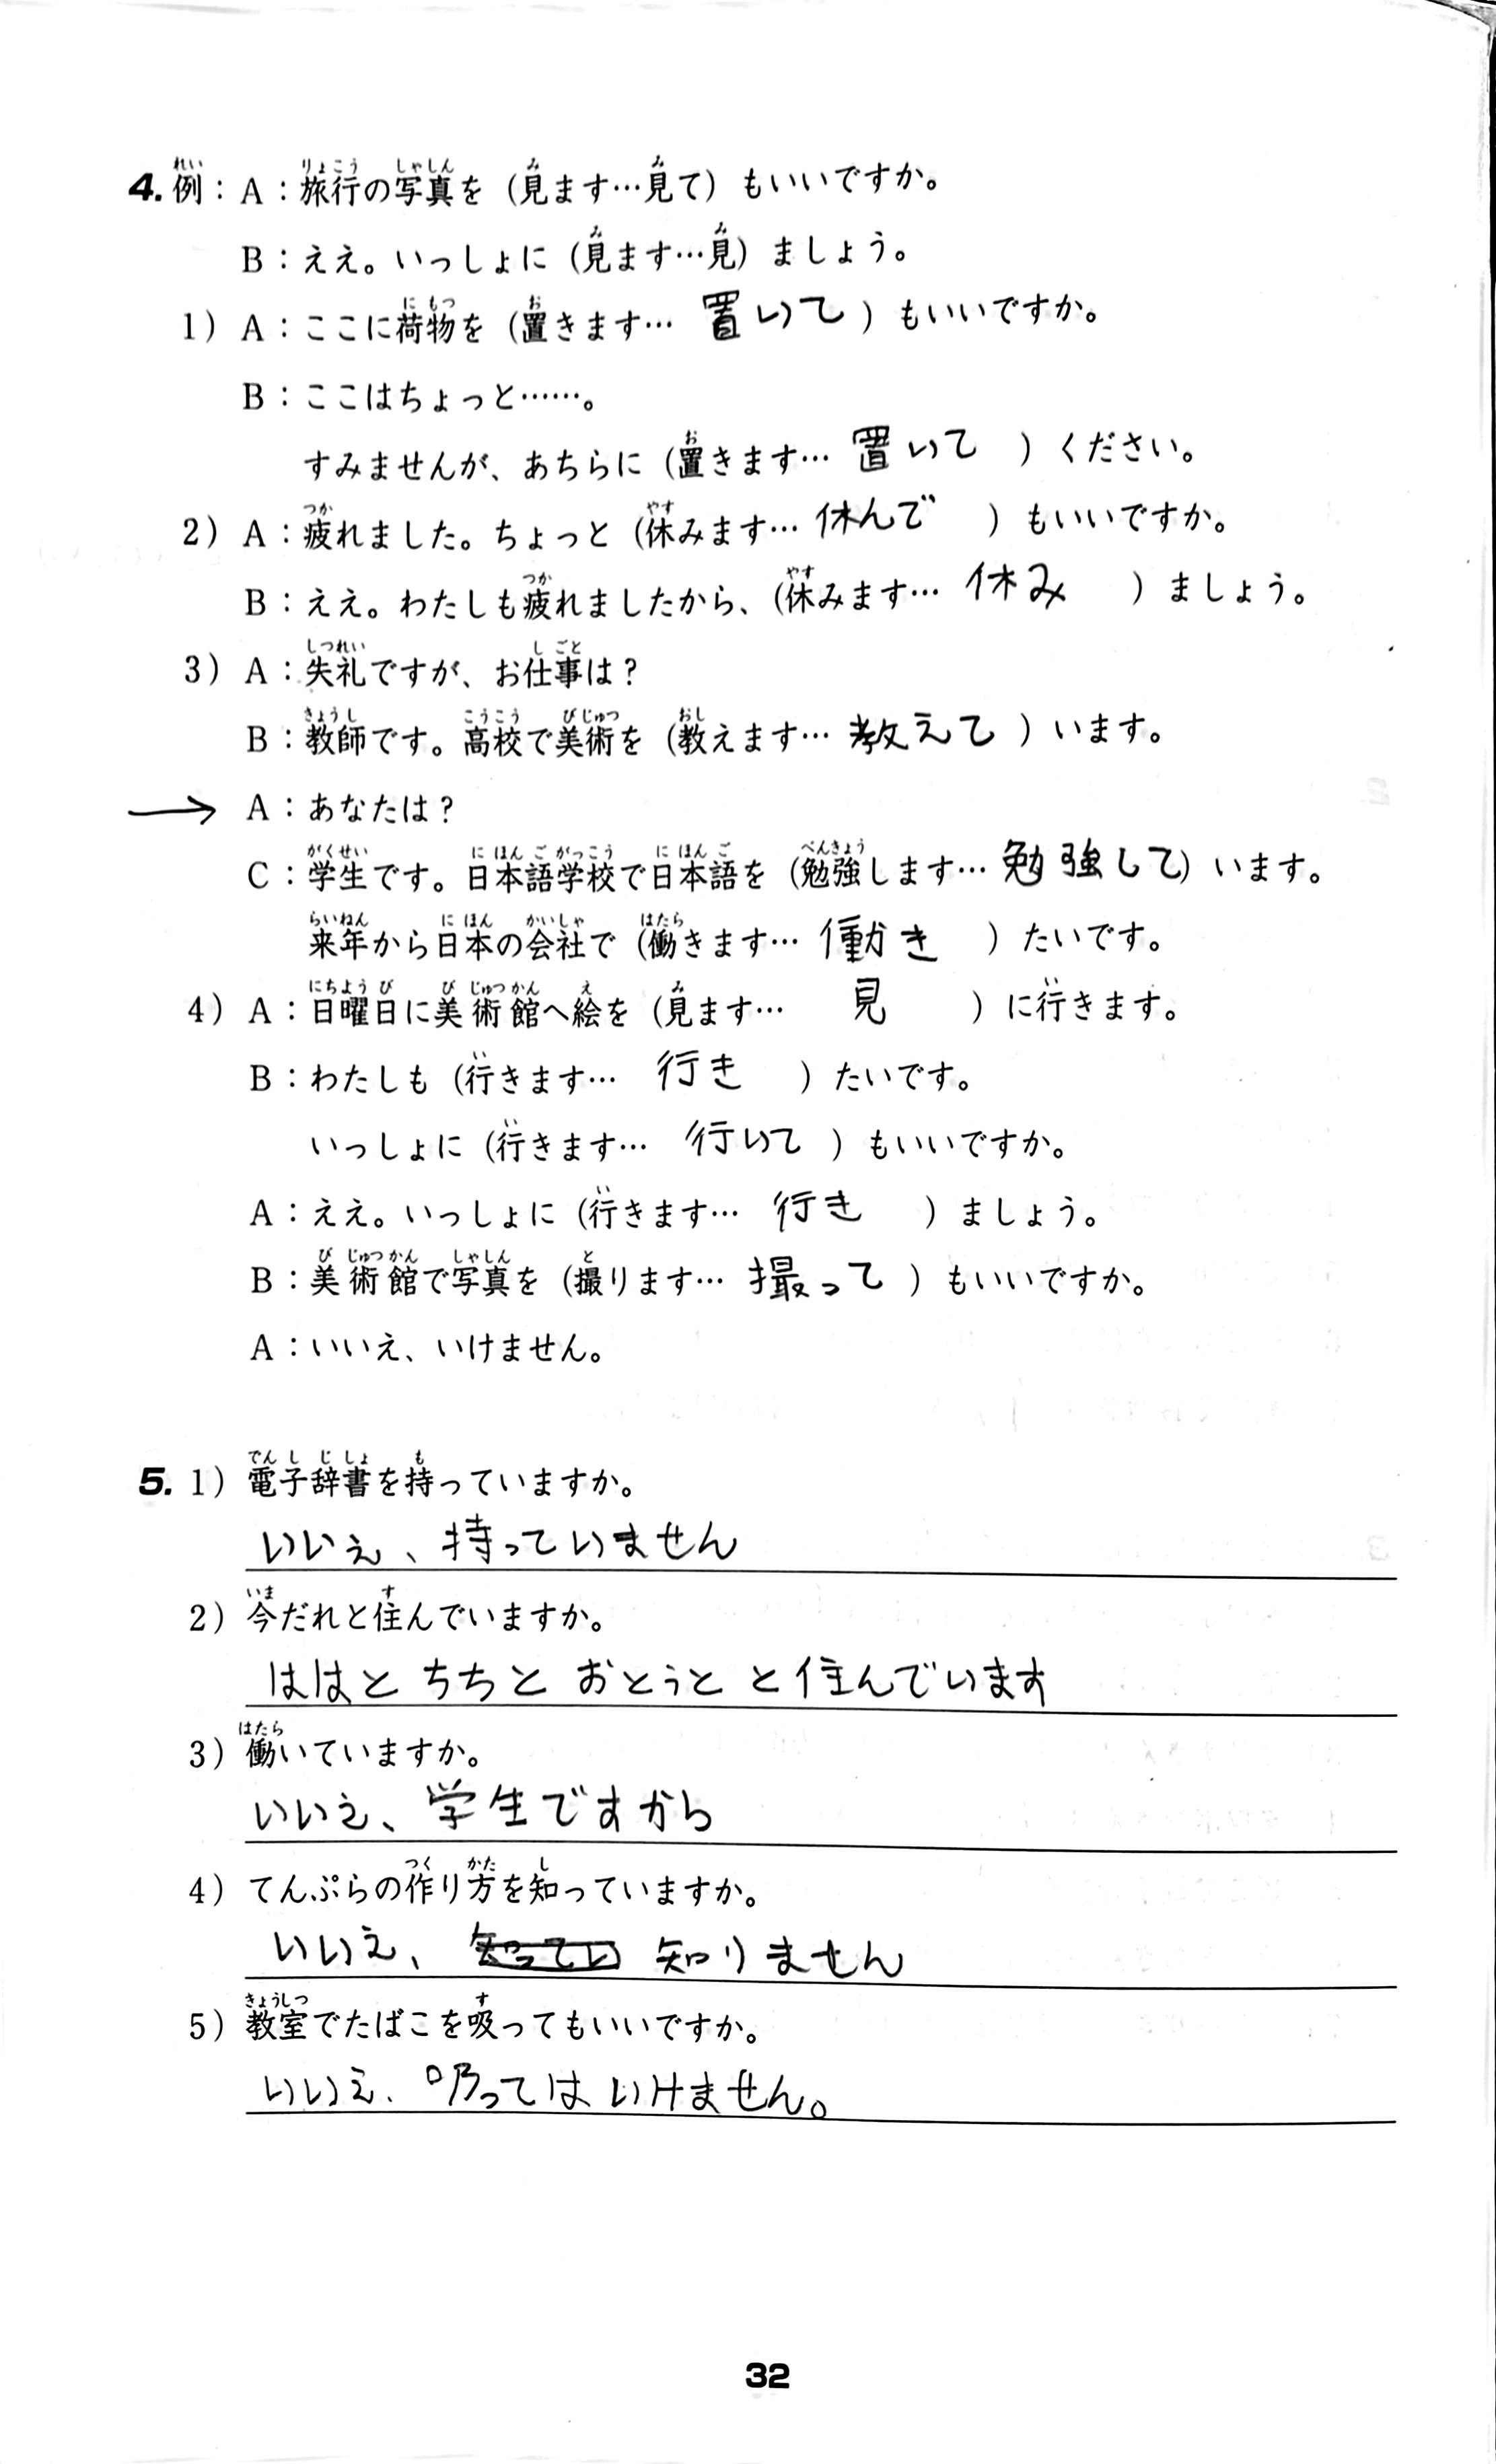 4. 例：A：旅行の写真を（見ます…見て）もいいですか。
B：ええ。いっしょに（見ます…見）ましょう。
1）A：ここに荷物を（置きます… 置いて ）もいいですか。
B：ここはちょっと……。
すみませんが、あちらに（置きます… 置いて ）ください。
2）A：疲れました。ちょっと（休みます… 休んで ）もいいですか。
B：ええ。わたしも疲れましたから、（休みます… 休み ）ましょう。
3）A：失礼ですが、お仕事は？
B：教師です。高校で美術を（教えます… 教えて ）います。
→ A：あなたは？
C：学生です。日本語学校で日本語を（勉強します… 勉強して）います。
来年から日本の会社で（働きます… 働き ）たいです。
4）A：日曜日に美術館へ絵を（見ます… 見 ）に行きます。
B：わたしも（行きます… 行き ）たいです。
いっしょに（行きます… 行いて ）もいいですか。
A：ええ。いっしょに（行きます… 行き ）ましょう。
B：美術館で写真を（撮ります… 撮って ）もいいですか。
A：いいえ、いけません。
5. 1）電子辞書を持っていますか。
いいえ、持っていません
2）今だれと住んでいますか。
ははと ちちと おとうと と住んでいます
3）働いていますか。
いいえ、学生ですから
4）てんぷらの作り方を知っていますか。
いいえ、知ってい 知りません
5）教室でたばこを吸ってもいいですか。
いいえ、吸ってはいけません。
32